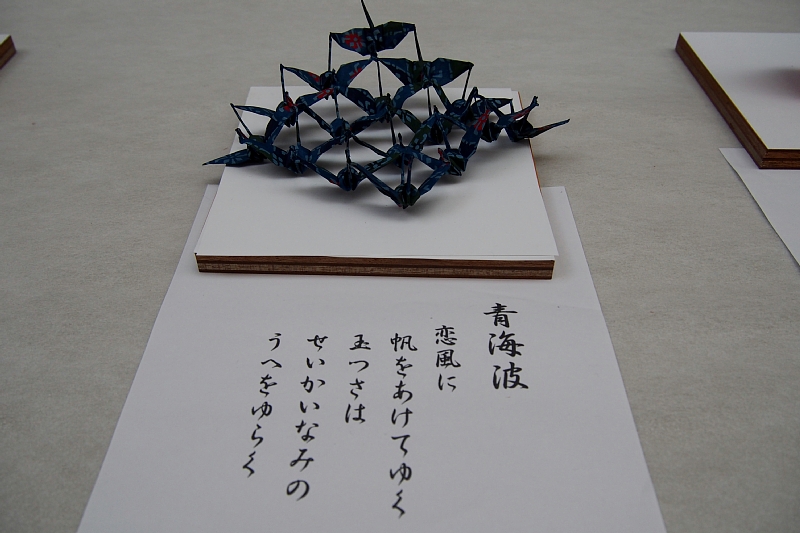 青海波
恋風に
帆をあけてゆく
玉つさは
せいかいなみの
うへをゆらく